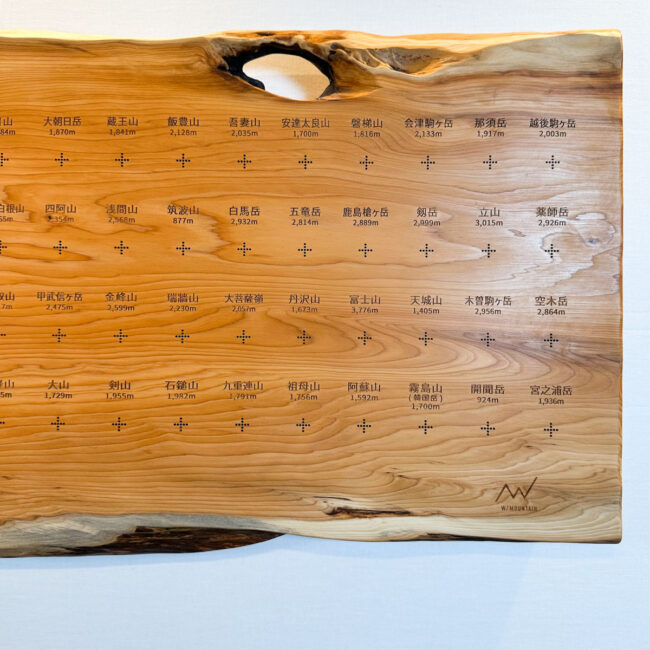 大朝日岳 蔵王山 飯豊山 吾妻山 安達太良山 磐梯山 会津駒ヶ岳 那須岳 越後駒ヶ岳
1,870m 1,841m 2,128m 2,035m 1,700m 1,816m 2,133m 1,917m 2,003m
白根山 四阿山 浅間山 筑波山 白馬岳 五竜岳 鹿島槍ヶ岳 剱岳 立山 薬師岳
2,354m 2,568m 877m 2,932m 2,814m 2,889m 2,999m 3,015m 2,926m
甲武信ヶ岳 金峰山 瑞牆山 大菩薩嶺 丹沢山 富士山 天城山 木曽駒ヶ岳 空木岳
2,475m 2,599m 2,230m 2,057m 1,673m 3,776m 1,405m 2,956m 2,864m
大山 剣山 石鎚山 九重連山 祖母山 阿蘇山 霧島山 開聞岳 宮之浦岳
(韓国岳)
1,729m 1,955m 1,982m 1,791m 1,756m 1,592m 1,700m 924m 1,936m
W/MOUNTAIN